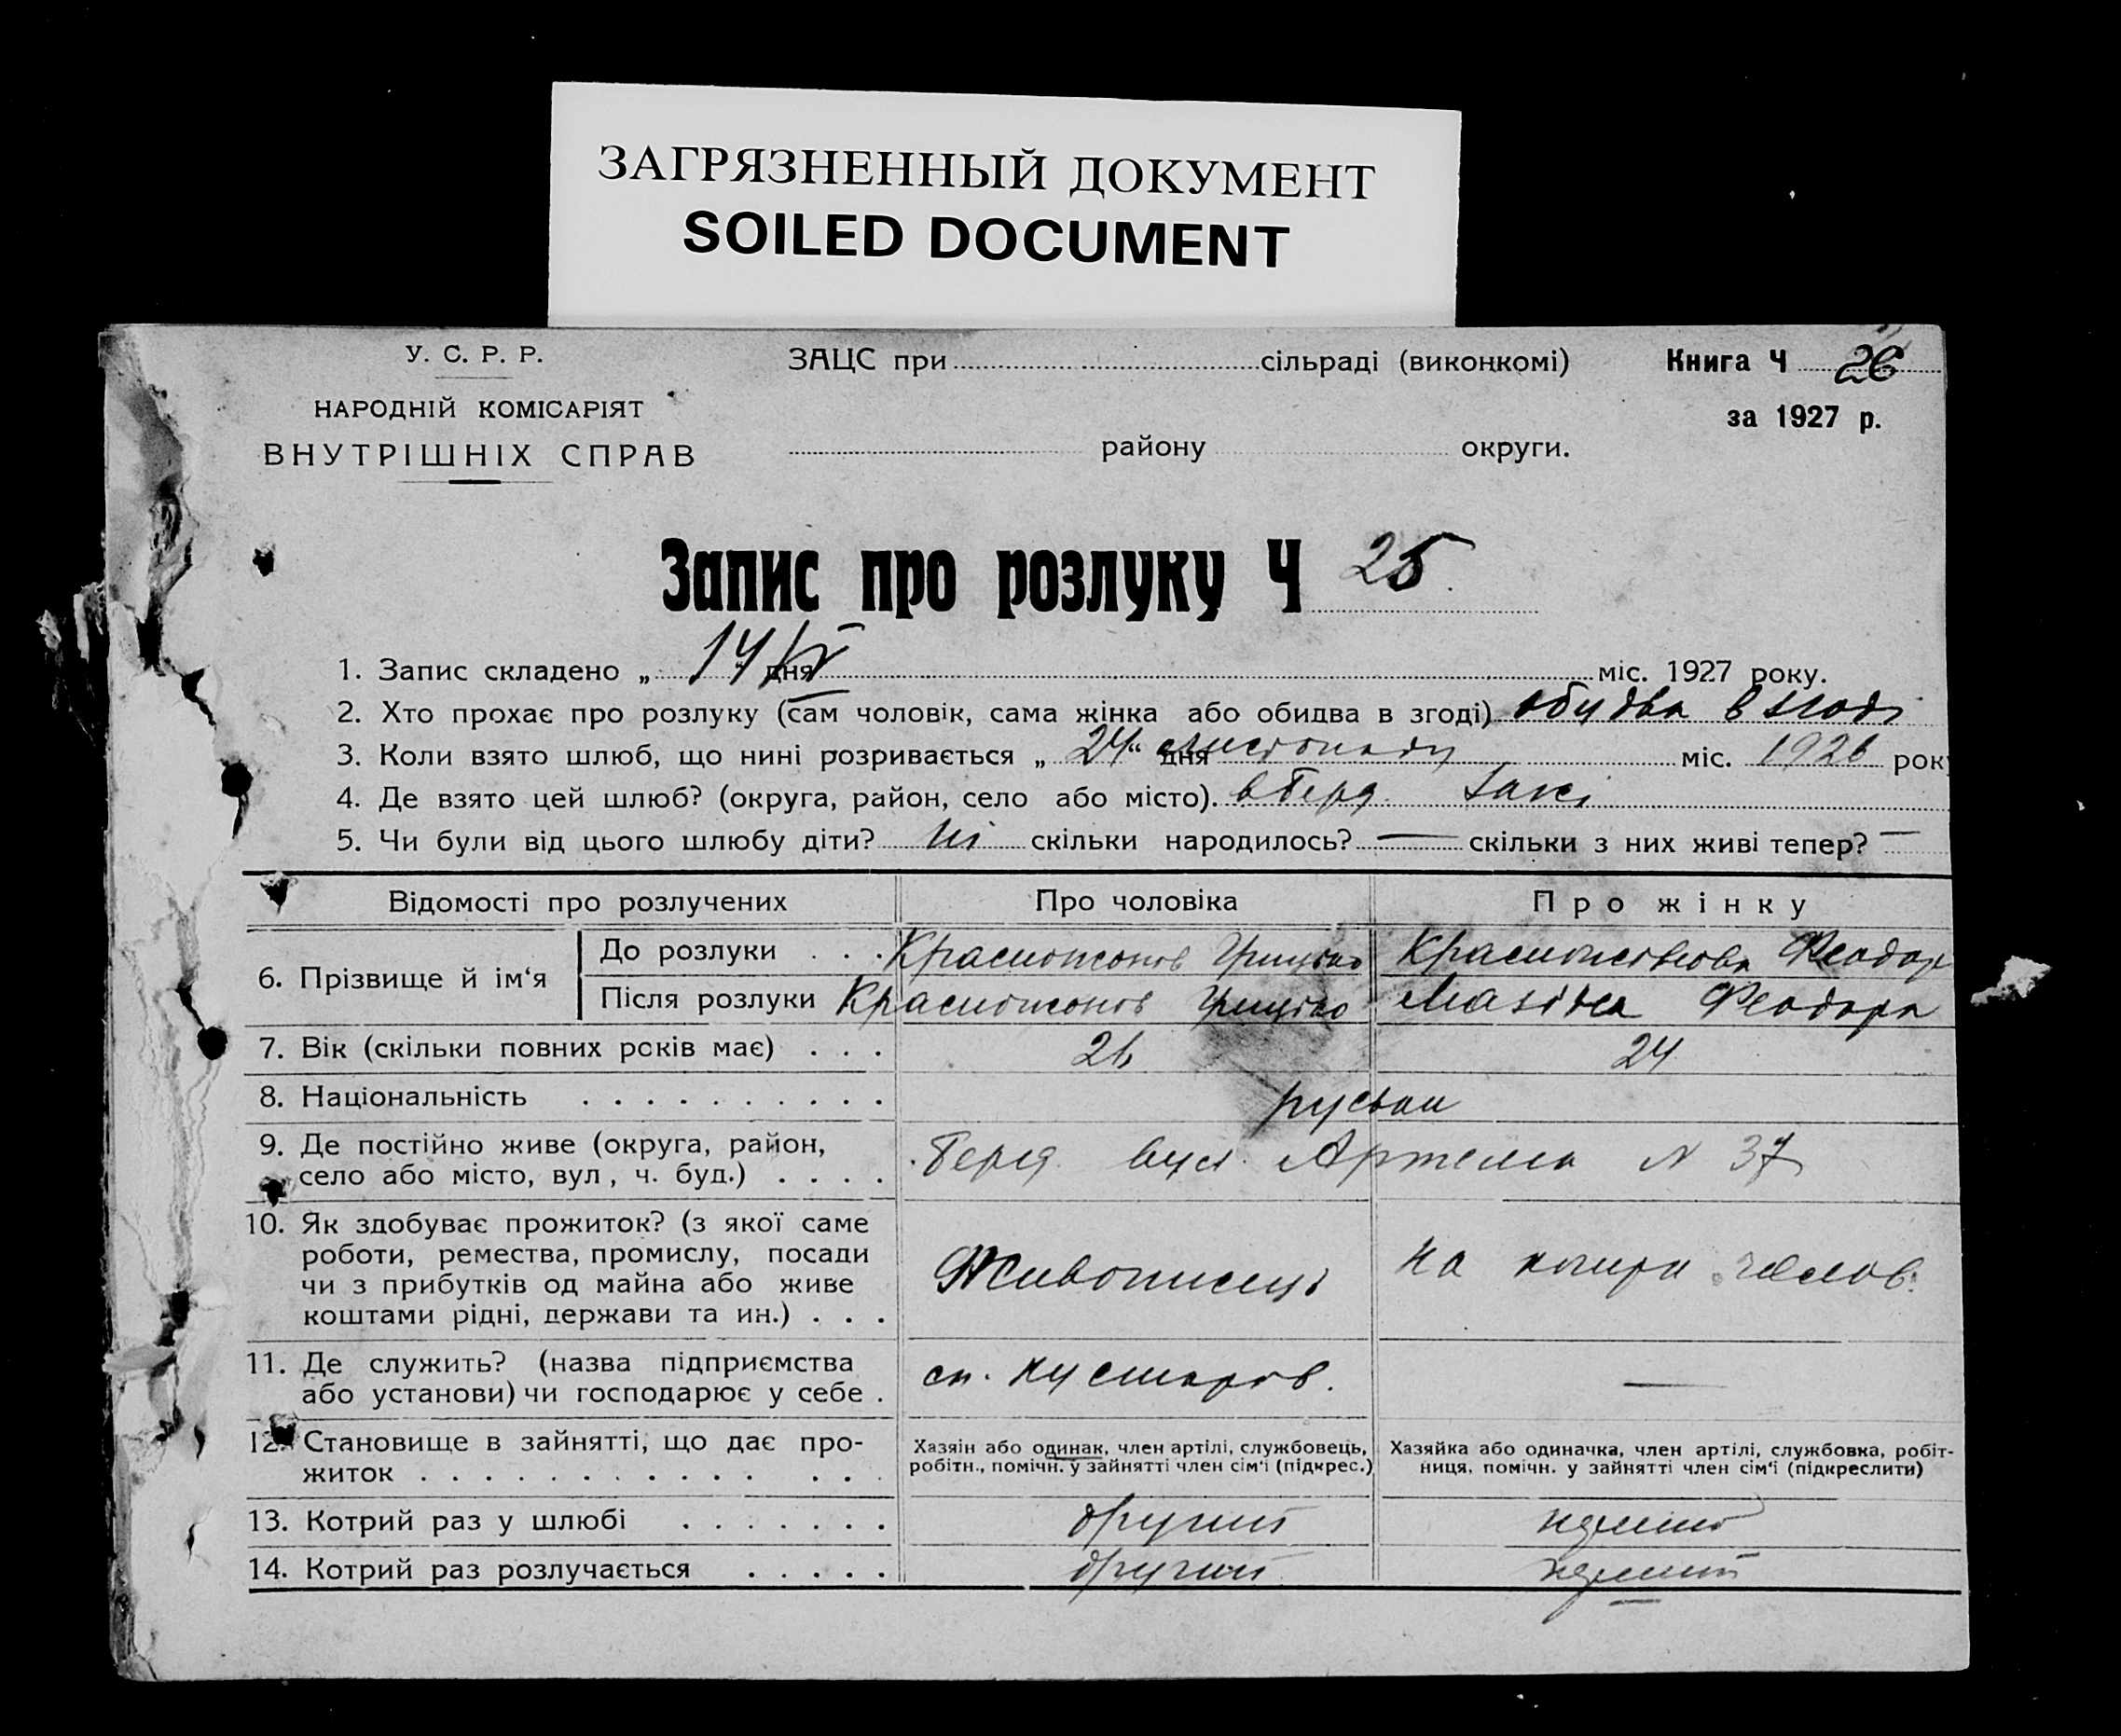 ЗАГРЯЗНЕННЫЙ ДОКУМЕНТ
SOILED DOCUMENT
У. С. Р. Р.
НАРОДНІЙ КОМІСАРІЯТ
ВНУТРІШНІХ СПРАВ
ЗАЦС при сільраді (виконкомі)
району округи.
Книга Ч 26
за 1927 р.
Запис про розлуку Ч 25
1. Запис складено „ 14/IV дня міс. 1927 року.
2. Хто прохає про розлуку (сам чоловік, сама жінка або обидва в згоді) обидва в згоді
3. Коли взято шлюб, що нині розривається „ 24“ дня листопаду міс. 1926 рок
4. Де взято цей шлюб? (округа, район, село або місто). в Берд. Загсі
5. Чи були від цього шлюбу діти? ні скільки народилось? — скільки з них живі тепер? —
Відомості про розлучених Про чоловіка Про жінку
6. Прізвище й ім‘я
До розлуки . . . Красножонов Грицько Феодор
Після розлуки Красножонов Грицько Мазіна Феодора
7. Вік (скільки повних років має) . . . 26 24
8. Національність . . . . . . . . . . руськи
9. Де постійно живе (округа, район,
село або місто, вул, ч. буд.) . . . . Берд. вул. Артема N 37
10. Як здобуває прожиток? (з якої саме
роботи, ремества, промислу, посади
чи з прибутків од майна або живе
коштами рідні, держави та ин.) . . .
Живописець
на чолов.
11. Де служить? (назва підприємства
або установи) чи господарює у себе .
сп. кустаров. —
12. Становище в зайнятті, що дає про-
житок . . . . . . . . . . . . . . .
Хазяін або одинак, член артілі, службовець,
робітн., помічн. у зайнятті член сім‘ї (підкрес.)
Хазяйка або одиначка, член артілі, службовка, робіт-
ниця, помічн. у зайнятті член сім‘ї (підкреслити)
13. Котрий раз у шлюбі . . . . . . . другий
14. Котрий раз розлучається . . . . . другий